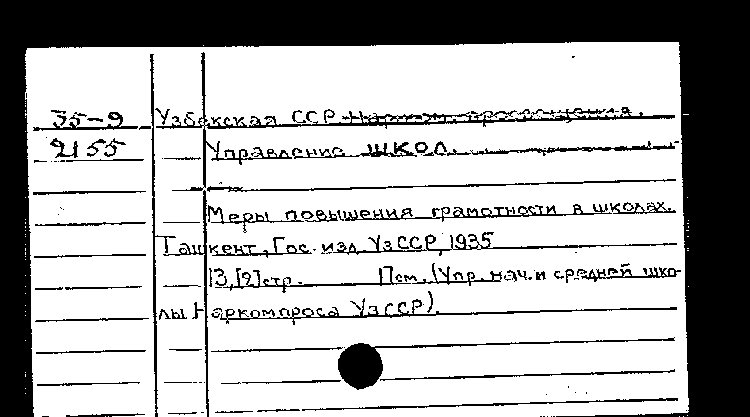 35-9 Узбекская ССР Нарком. просвещения.
2155 Управление школ.
Меры повышения грамотности в школах.
Ташкент, Гос. изд. УзССР, 1935
13,[2] стр. (Упр. нач. и средней шко-
лы Наркомпроса УзССР).